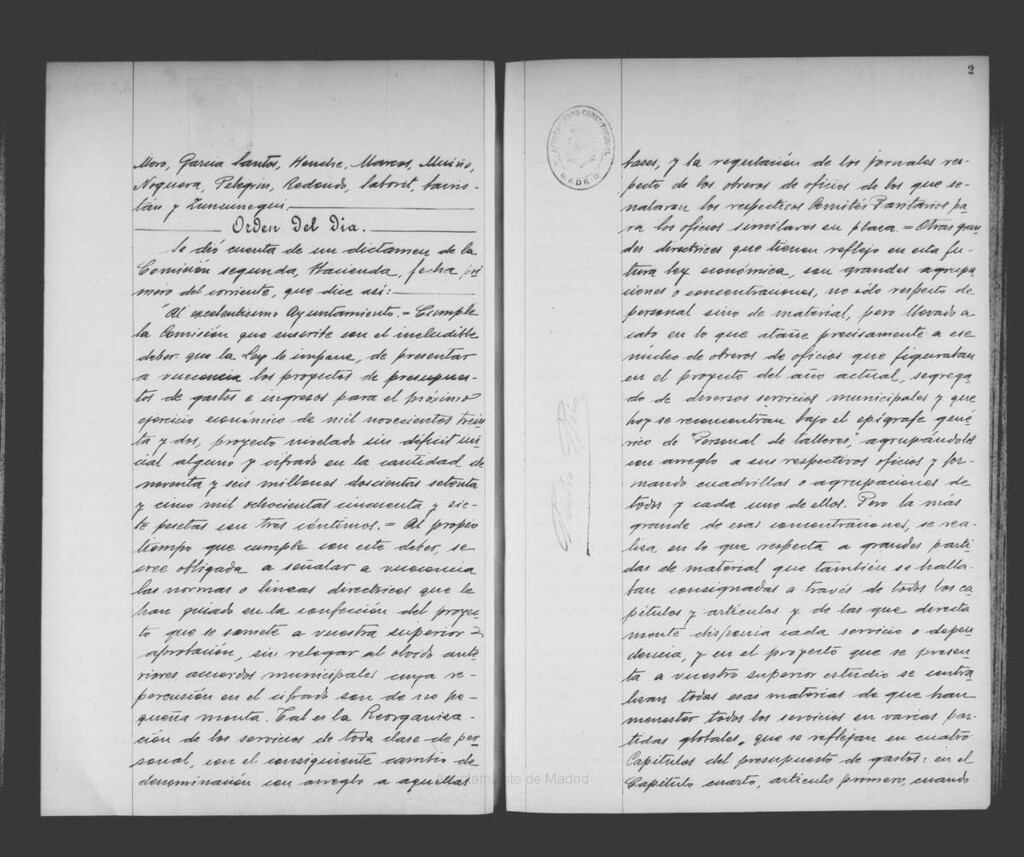 Moro, García Santos, Henche, Marcos, Muiño,
Noguera, Pelegrín, Redondo, Saborit, Sainis-
tán y Zunzunegui.
Orden Del Dia.
Se dió cuenta de un dictamen de la
Comisión segunda, Hacienda, fecha pri
mero del corriente, que dice así:
"Al excelentísimo Ayuntamiento. = Cumple
la Comisión que suscribe con el ineludible
deber que la Ley le impone, de presentar
a vuecencia los proyectos de presupues-
tos de gastos e ingresos para el próximo
ejercicio económico de mil novecientos trein
ta y dos, proyecto nivelado sin déficit ini
cial alguno y cifrado en la cantidad de
noventa y seis millones doscientas setenta
y cinco mil ochocientas cincuenta y sie-
te pesetas con tres céntimos. = Al propio
tiempo que cumple con este deber, se
cree obligada a señalar a vuecencia
las normas o líneas directrices que le
han guiado en la confección del proyec-
to que se somete a vuestra superior
aprobación, sin relegar al olvido ante-
riores acuerdos municipales cuya re-
percusión en el cifrado son de no pe-
queña monta. Tal es la Reorganiza-
ción de los servicios de toda clase de per-
sonal, con el consiguiente cambio de
denominación con arreglo a aquellas
Ayuntamiento de Madrid
2
AYUNTAMIENTO CONSTITUCIONAL
MADRID
bases, y la regulación de los jornales res-
pecto de los obreros de oficios de los que se-
ñalaran los respectivos Comités Paritarios pa
ra los oficios similares en plaza = Otras gran
des directrices que tienen reflejo en esta fu-
tura ley económica, son grandes agrupa-
ciones o concentraciones, no sólo respecto de
personal sino de material, pero llevado a
cabo en lo que atañe precisamente a ese
núcleo de obreros de oficios que figuraban
en el proyecto del año actual, segrega-
do de diversos servicios municipales y que
hoy se reconcentran bajo el epígrafe gené
rico de "Personal de talleres", agrupándoles
con arreglo a sus respectivos oficios y for-
mando cuadrillas o agrupaciones de
todos y cada uno de ellos. Pero la más
grande de esas concentraciones, se rea-
liza en lo que respecta a grandes parti-
das de material que también se halla-
ban consignadas a través de todos los ca
pítulos y artículos y de las que directa
mente disponía cada servicio o depen-
dencia, y en el proyecto que se presen
ta a vuestro superior estudio se centra
lizan todas esas materias de que han
menester todos los servicios en varias par-
tidas globales, que se reflejan en cuatro
Capítulos del presupuesto de gastos: en el
Capítulo cuarto, artículo primero, cuando